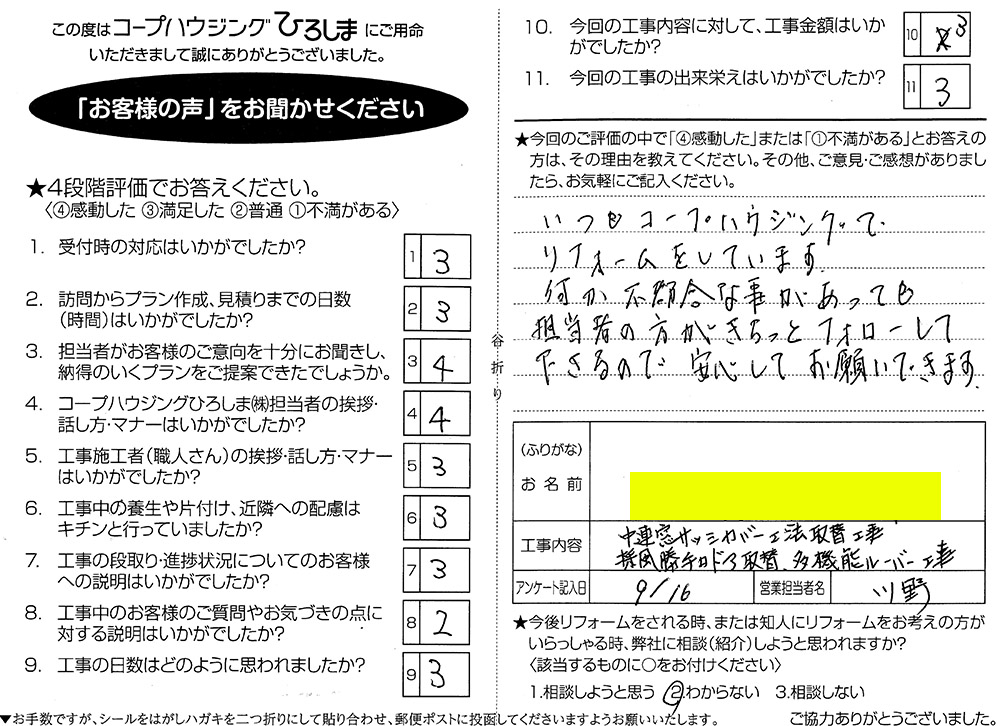 この度はコープハウジングひろしまにご用命
いただきまして誠にありがとうございました。
「お客様の声」をお聞かせください
★4段階評価でお答えください。
〈④感動した ③満足した ②普通 ①不満がある〉
1. 受付時の対応はいかがでしたか? 1 3
2. 訪問からプラン作成、見積りまでの日数
(時間)はいかがでしたか? 2 3
3. 担当者がお客様のご意向を十分にお聞きし、
納得のいくプランをご提案できたでしょうか。 3 4
4. コープハウジングひろしま㈱担当者の挨拶・
話し方・マナーはいかがでしたか? 4 4
5. 工事施工者(職人さん)の挨拶・話し方・マナー
はいかがでしたか? 5 3
6. 工事中の養生や片付け、近隣への配慮は
キチンと行っていましたか? 6 3
7. 工事の段取り・進捗状況についてのお客様
への説明はいかがでしたか? 7 3
8. 工事中のお客様のご質問やお気づきの点に
対する説明はいかがでしたか? 8 2
9. 工事の日数はどのように思われましたか? 9 3
▼お手数ですが、シールをはがしハガキを二つ折りにして貼り合わせ、郵便ポストに投函してくださいますようお願いいたします。
谷折り
10. 今回の工事内容に対して、工事金額はいか
がでしたか? 10 3
11. 今回の工事の出来栄えはいかがでしたか? 11 3
★今回のご評価の中で「④感動した」または「①不満がある」とお答えの
方は、その理由を教えてください。その他、ご意見・ご感想がありまし
たら、お気軽にご記入ください。
いつもコープハウジングで
リフォームをしています
何か不都合な事があっても
担当者の方がきちっとフォローして
下さるので安心してお願いできます
(ふりがな)
お名前
工事内容 中連窓サッシカバー工法取替工事
採風勝手口ドア取替、多機能ルーバー工事
アンケート記入日 9/16 営業担当者名 川野
★今後リフォームをされる時、または知人にリフォームをお考えの方が
いらっしゃる時、弊社に相談(紹介)しようと思われますか?
〈該当するものに○をお付けください〉
1.相談しようと思う ②わからない 3.相談しない
ご協力ありがとうございました。